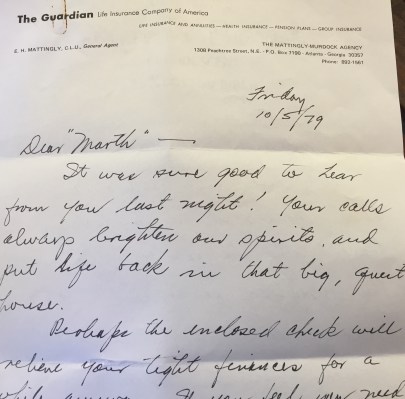 The Guardian Life Insurance Company of America
LIFE INSURANCE AND ANNUITIES — HEALTH INSURANCE — PENSION PLANS — GROUP INSURANCE
E. H. MATTINGLY, C.L.U., General Agent
THE MATTINGLY-MURDOCK AGENCY
1309 Peachtree Street, N.E. · P.O. Box 7199 · Atlanta · Georgia 30357
Phone: 892-1561
Friday
10/5/79
Dear "Marth" —
It was sure good to hear
from you last night! Your calls
always brighten our spirits, and
put life back in that big, quiet
house.
Perhaps the enclosed check will
relieve your tight finances for a
while anyway. If you feel need